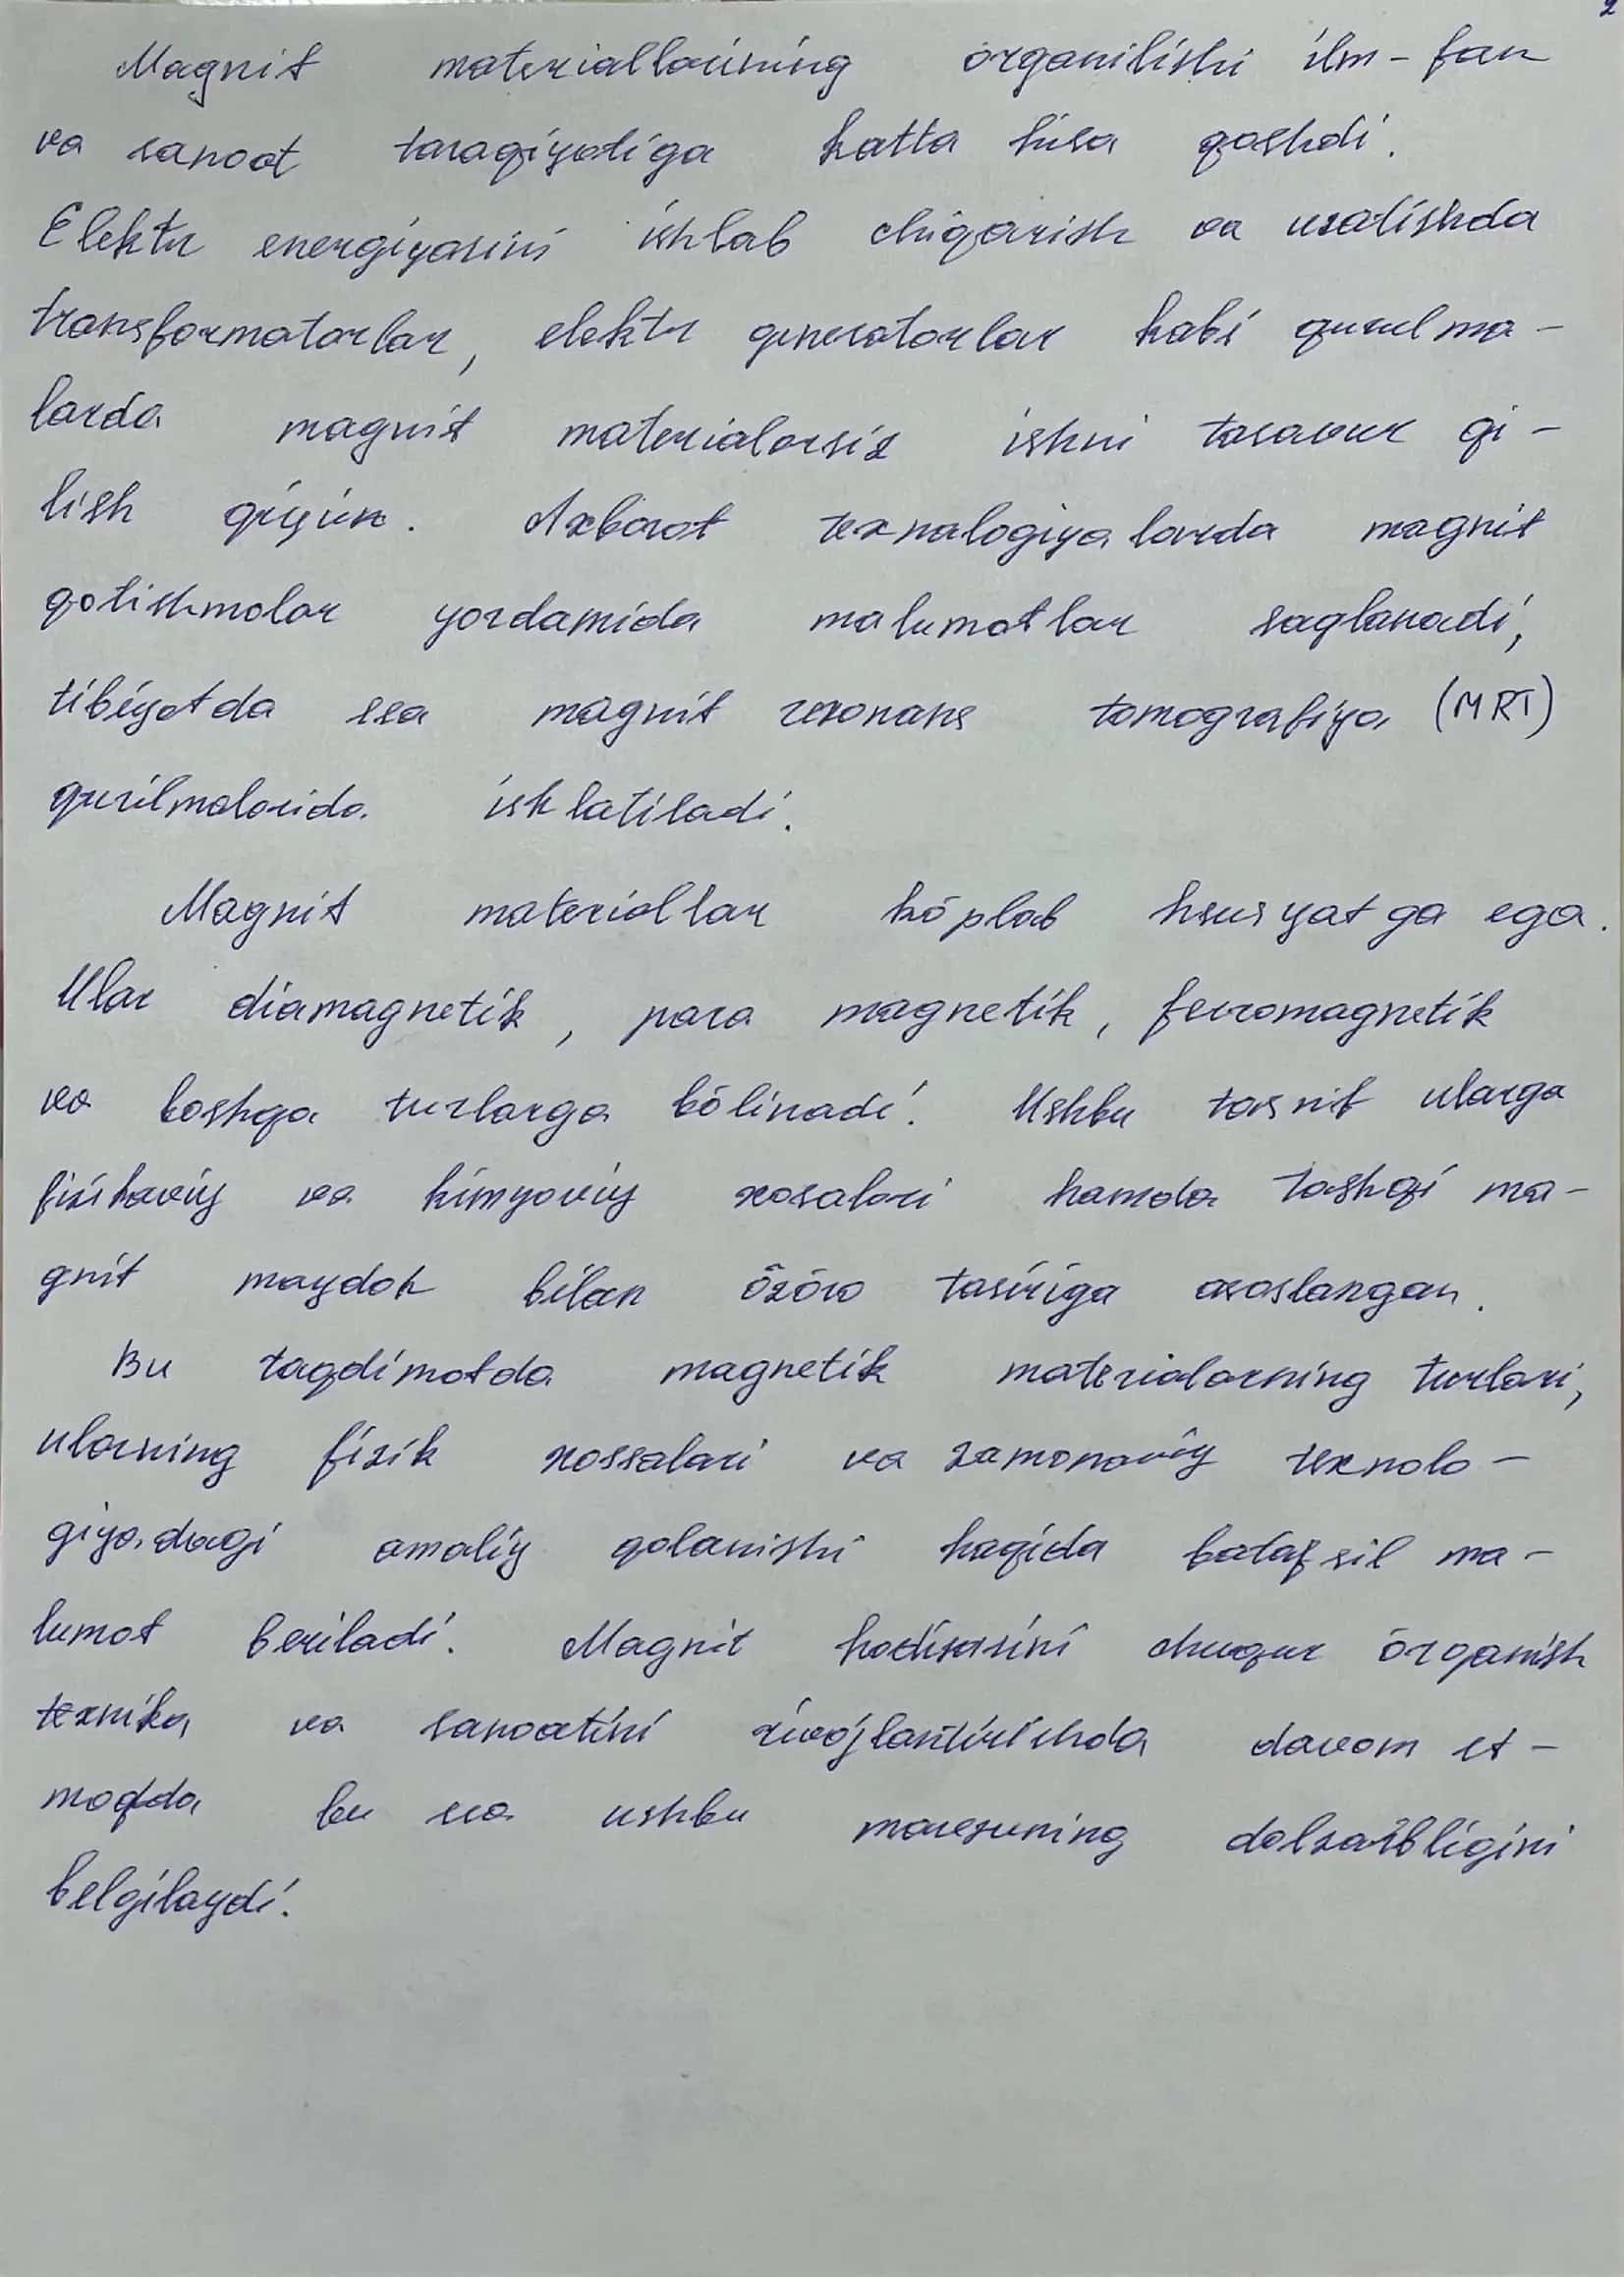 2
Magnit materiallarining órganilishi ilm-fan
va sanoat taraqiyotiga katta hisa qoshdi.
Elektr energiyasini ishlab chiqarish va uzatishda
transformatorlar, elektr generatorlar kabi qurulma-
larda magnit materialarsiz ishni tasavur qi-
lish qiyin. Axborot texnalogiyalarda magnit
qotishmalar yordamida malumotlar saqlanadi,
tibiyotda esa magnit rezonans tomografiya (MRT)
qurilmalarida ishlatiladi.
Magnit materiallar kóplab hsusyatga ega.
Ular diamagnetik, para magnetik, ferromagnetik
va boshqa turlarga bólinadi. Ushbu tasnif ularga
fizikaviy va kimyoviy xosalari hamda tashqi ma-
gnit maydon bilan ózóro tasiriga asoslangan.
Bu taqdimotda magnetik materialarning turlari,
ularning fizik xossalari va zamonaviy texnolo-
giyadagi amaliy qolanishi haqida batafsil ma-
lumot beriladi. Magnit hodisasini chuqur órganish
texnika va sanoatini rivójlantirishda davom et-
moqda bu esa ushbu mavzuning dolzarbligini
belgilaydi.